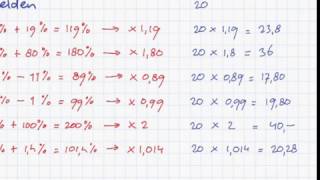 elden 20
% + 19% = 119% → x 1,19 20 x 1,19 = 23,8
% + 80% = 180% → x 1,80 20 x 1,8 = 36
% - 11% = 89% → x 0,89 20 x 0,89 = 17,80
% - 1% = 99% → x 0,99 20 x 0,99 = 19,80
% + 100% = 200% → x 2 20 x 2 = 40,-
% + 1,4% = 101,4% → x 1,014 20 x 1,014 = 20,28